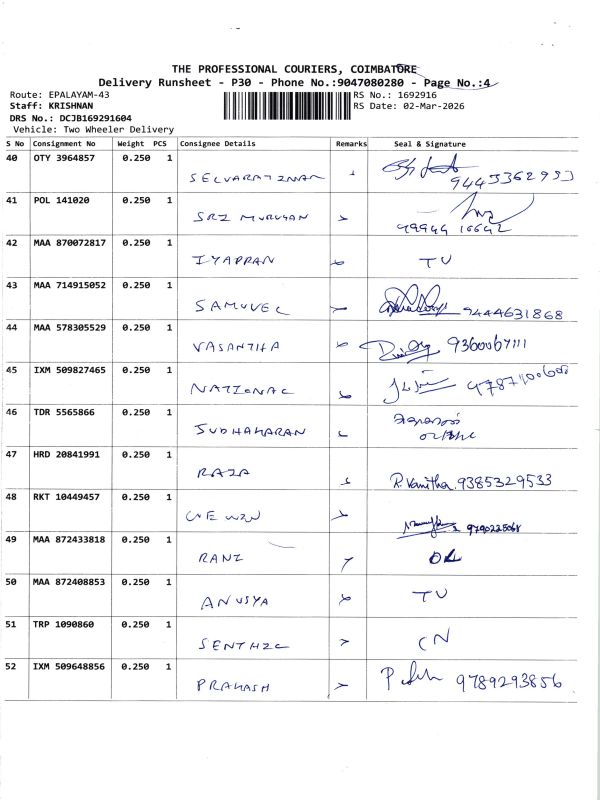 THE PROFESSIONAL COURIERS, COIMBATORE
Delivery Runsheet - P30 - Phone No.:9047080280 - Page No.:4
Route: EPALAYAM-43
RS No.: 1692916
Staff: KRISHNAN
RS Date: 02-Mar-2026
DRS No.: DCJB169291604
Vehicle: Two Wheeler Delivery
S No Consignment No Weight PCS Consignee Details Remarks Seal & Signature
40 OTY 3964857 0.250 1
SELVARATINAM
41 POL 141020 0.250 1
SRI MURUGAN
42 MAA 870072817 0.250 1
IYAPPAN TV
43 MAA 714915052 0.250 1
SAMUVEL 9444631868
44 MAA 578305529 0.250 1
VASANTHA
45 IXM 509827465 0.250 1
NATIONAL
46 TDR 5565866 0.250 1
SUDHAKARAN
47 HRD 20841991 0.250 1
RAJA R. Vanitha 9385329533
48 RKT 10449457 0.250 1
9790225068
49 MAA 872433818 0.250 1
RANI
50 MAA 872408853 0.250 1
ANUSYA TV
51 TRP 1090860 0.250 1
SENTHIL CN
52 IXM 509648856 0.250 1
PRAKASH 9789293856